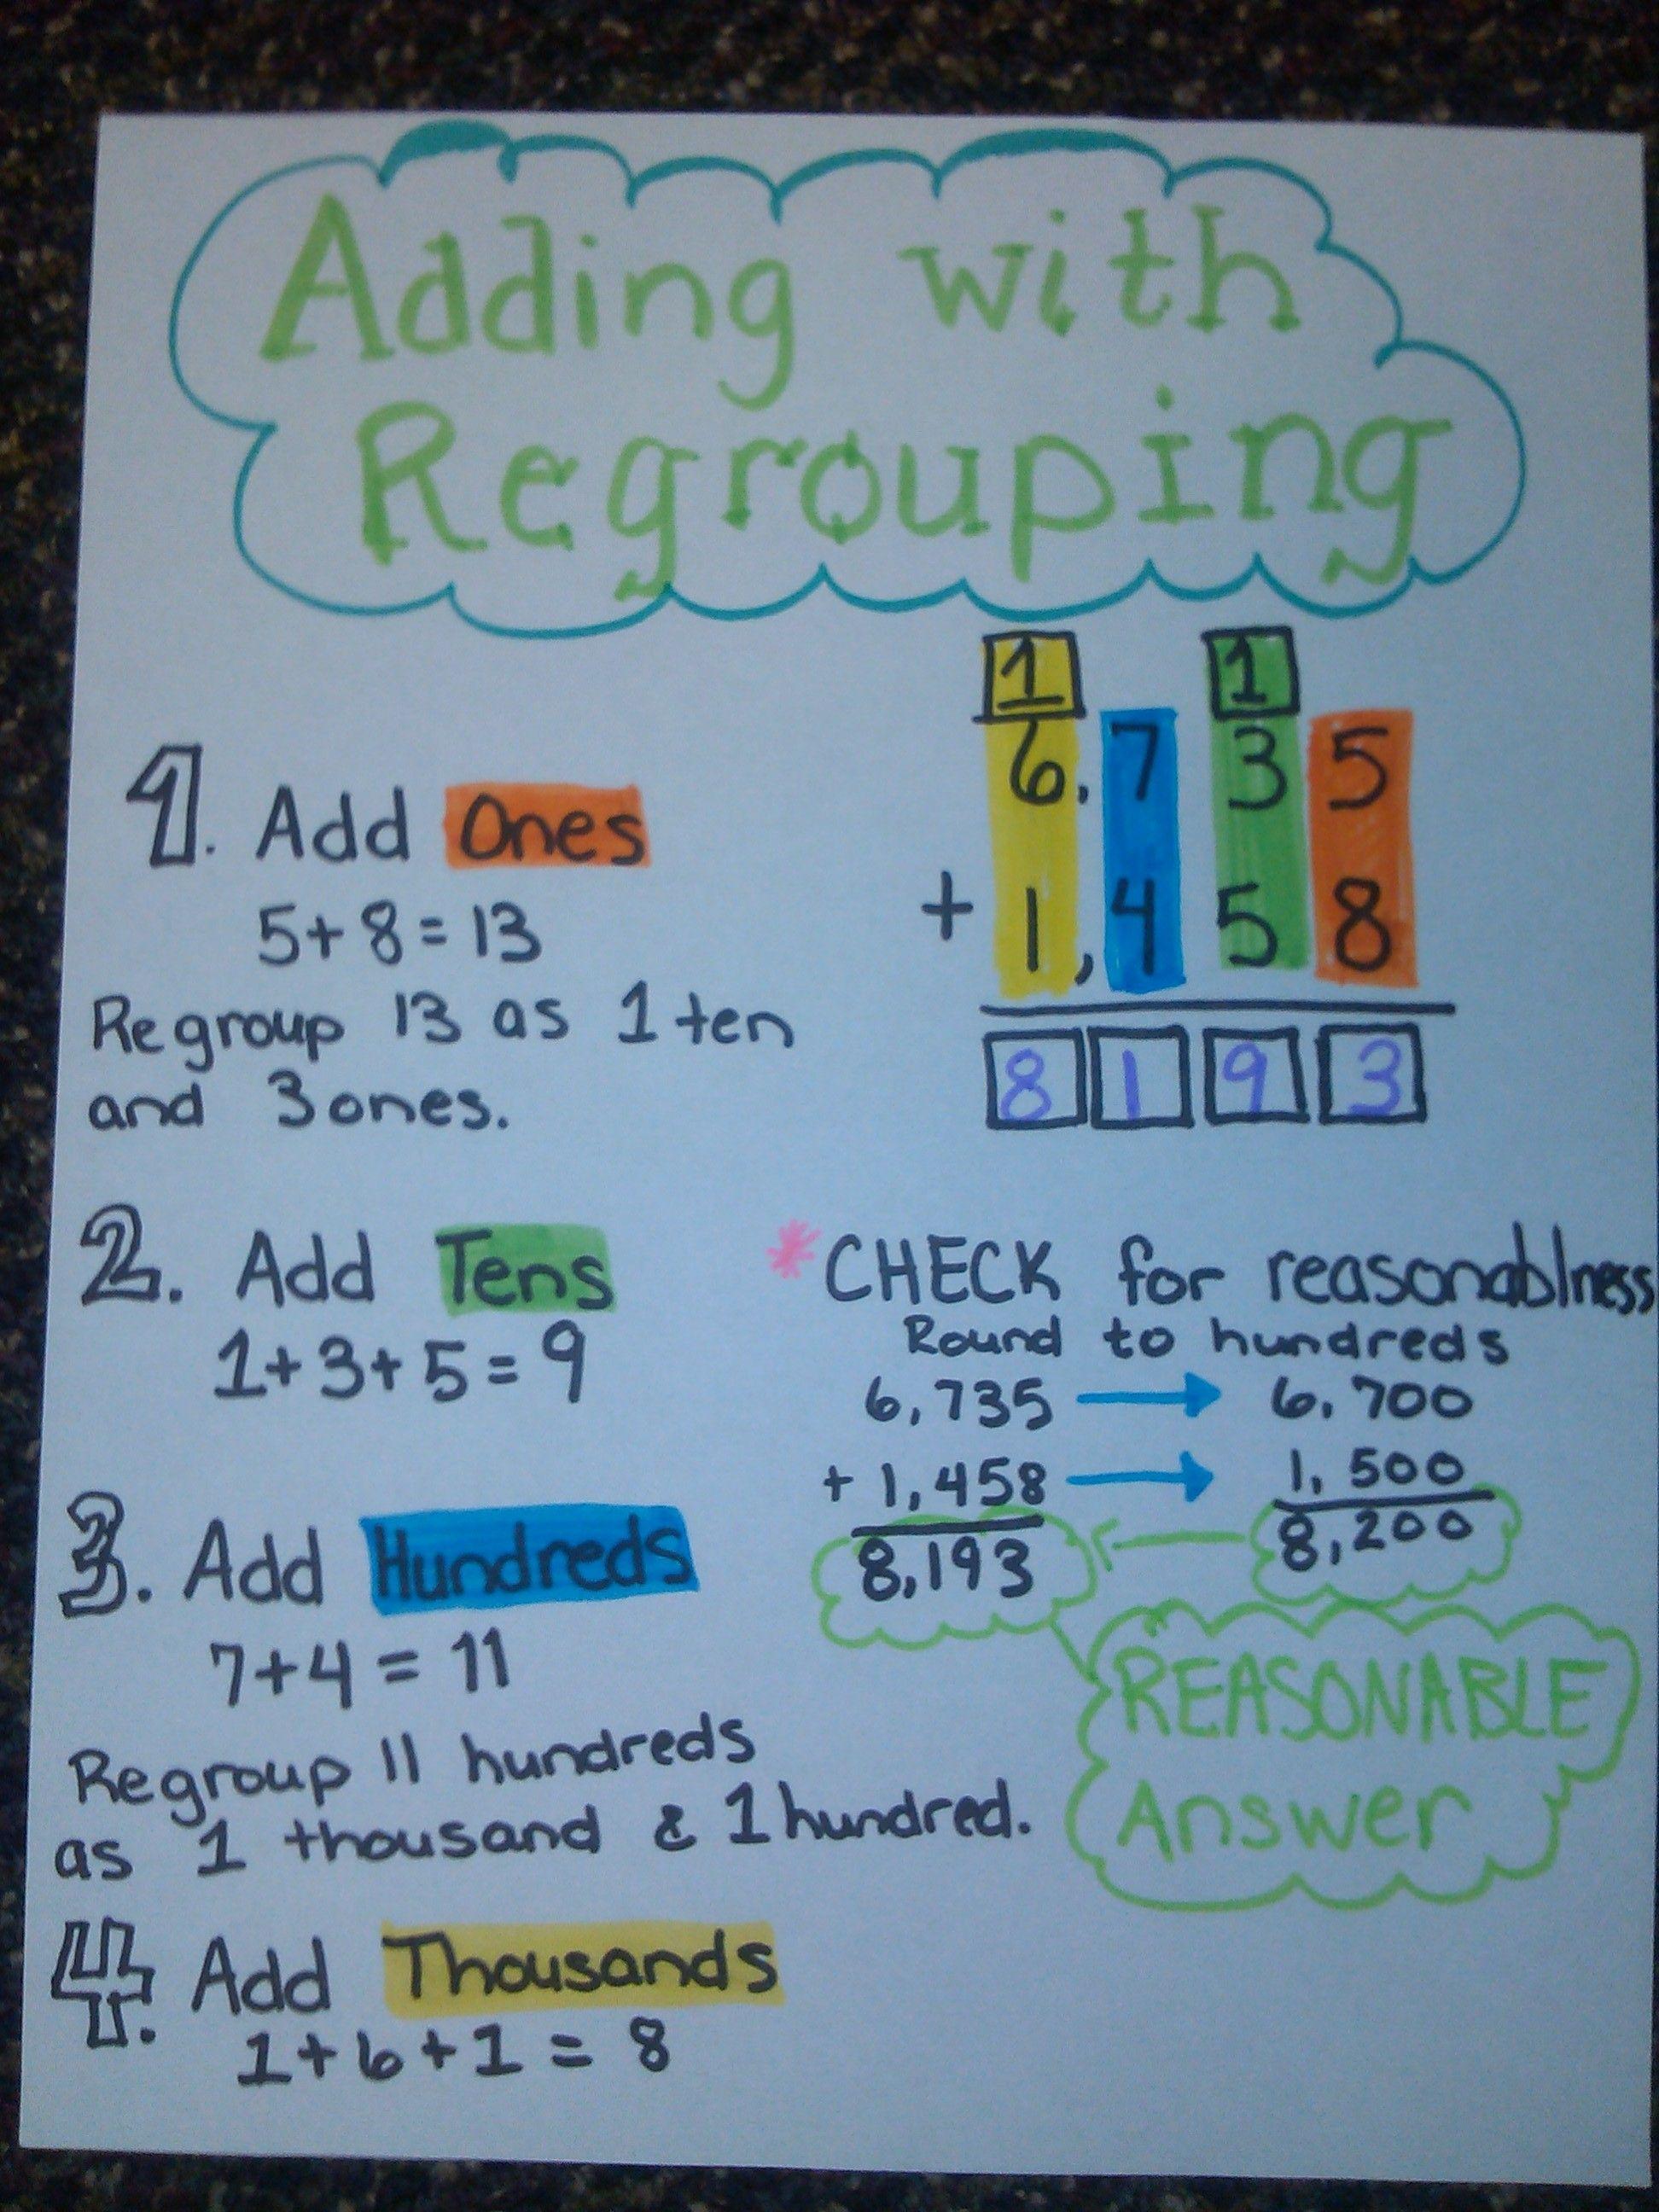 Adding with
Regrouping
1 1
6,735
+ 1,458
8193
1. Add Ones
5+8=13
Regroup 13 as 1 ten
and 3 ones.
2. Add Tens
1+3+5=9
3. Add Hundreds
7+4=11
Regroup 11 hundreds
as 1 thousand & 1 hundred.
4. Add Thousands
1+6+1=8
*CHECK for reasonablness
Round to hundreds
6,735 → 6,700
+ 1,458 → 1,500
8,193 ← 8,200
REASONABLE
Answer